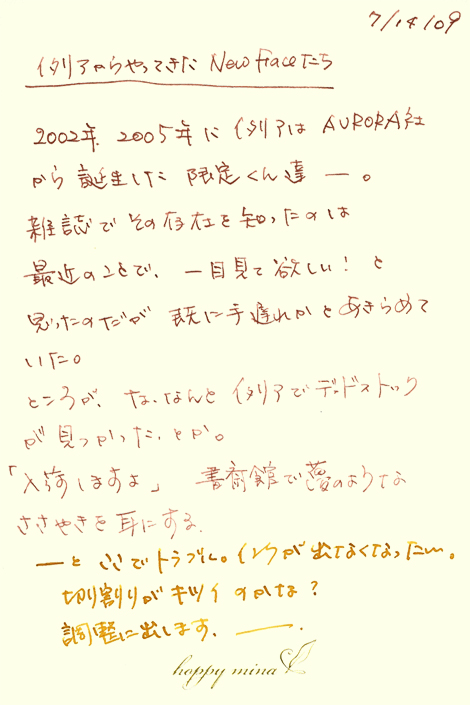 7/14/09
イタリアからやってきた New Faceたち
2002年、2005年に イタリアは AURORA社
から 誕生した 限定くん達 ー。
雑誌で その存在を 知ったのは
最近のことで、一目見て欲しい！と
思ったのだが 既に手遅れかと あきらめて
いた。
ところが、な、なんと イタリアで デッドストック
が 見つかった、とか。
「入荷しますよ」 書斎館で 夢のような
ささやきを 耳にする。
ーと ここで トラブル。インクが 出なくなったー。
切り割りが キツイ のかな？
調整に出します。ー.
happy mina